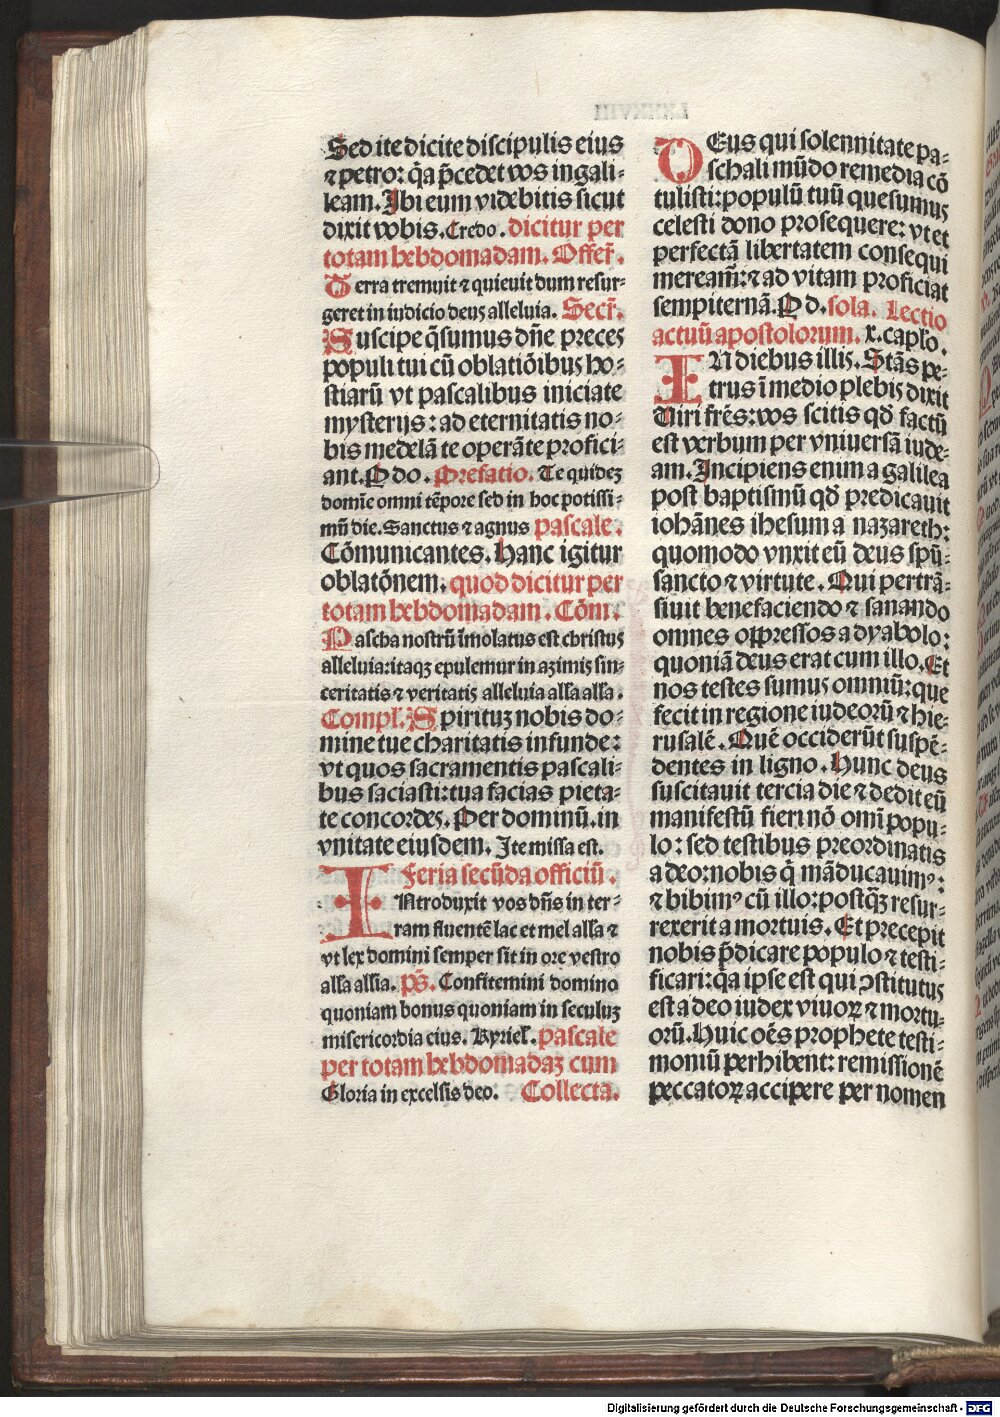 Sed ite dicite discipulis eius
⁊ petro: q̃a p̃cedet vos in gali⸗
leam. Ibi eum videbitis sicut
dixit vobis. Credo. dicitur per
totam hebdomadam. Offer̃.
Terra tremuit ⁊ quieuit dum resur⸗
geret in iudicio deus alleluia. Secr̃.
Suscipe q̃sumus dñe preces
populi tui cũ oblatiõibus ho⸗
stiarũ vt pascalibus iniciate
mysterijs: ad eternitatis no⸗
bis medelã te operãte profici⸗
ant. P do. Prefatio. Te quideʒ
domiẽ omni tẽpore sed in hoc potissi⸗
mũ die. Sanctus ⁊ agnus pascale.
Cõmunicantes. Hanc igitur
oblatõnem. quod dicitur per
totam hebdomadam. Cõm̃.
Pascha nostrũ ĩmolatus est christus
alleluia: itaqʒ epulemur in azimis sin⸗
ceritatis ⁊ veritatis alleluia alla alla.
Compl̃. Spiritũ nobis do⸗
mine tue charitatis infunde:
vt quos sacramentis pascali⸗
bus saciasti: tua facias pieta⸗
te concordes. Per dominũ. in
vnitate eiusdem. Ite missa est.
Feria secũda officiũ.
INtroduxit vos dñs in ter⸗
ram fluentẽ lac et mel alla ⁊
vt lex domini semper sit in ore vestro
alla allia. p̃s. Confitemini domino
quoniam bonus quoniam in seculuʒ
misericordia eius. Kyriel̃. pascale
per totam hebdomadaʒ cum
Gloria in excelsis deo. Collecta.
DEus qui solennitate pa⸗
schali mũdo remedia cõ
tulisti: populũ tuũ quesumus
celesti dono prosequere: vt et
perfectã libertatem consequi
meream̃: ⁊ ad vitam proficiat
sempiternã. P d. sola. Lectio
actuũ apostolorum. x. caplo.
IN diebus illis. Stãs pe⸗
trus ĩ medio plebis dixit
Viri frẽs: vos scitis qđ factũ
est verbum per vniuersã iude⸗
am. Incipiens enim a galilea
post baptismũ qđ predicauit
iohãnes ihesum a nazareth:
quomodo vnxit eũ deus spũ
sancto ⁊ virtute. Qui pertrã⸗
siuit benefaciendo ⁊ sanando
omnes oppressos a dyabolo:
quoniã deus erat cum illo. Et
nos testes sumus omniũ: que
fecit in regione iudeorũ ⁊ hie⸗
rusalẽ. Quẽ occiderũt suspẽ⸗
dentes in ligno. Hunc deus
suscitauit tercia die ⁊ dedit eũ
manifestũ fieri nõ om̃i popu⸗
lo: sed testibus preordinatis
a deo: nobis q̃ mãducauimꝰ:
⁊ bibimꝰ cũ illo: postqʒ̃ resur⸗
rexerit a mortuis. Et precepit
nobis p̃dicare populo ⁊ testi⸗
ficari: q̃a ipse est qui ꝯstitutus
est a deo iudex viuoꝝ ⁊ mortu⸗
orũ. Huic oẽs prophete testi⸗
moniũ perhibent: remissionẽ
peccatoꝝ accipere per nomen
Digitalisierung gefördert durch die Deutsche Forschungsgemeinschaft - DFG